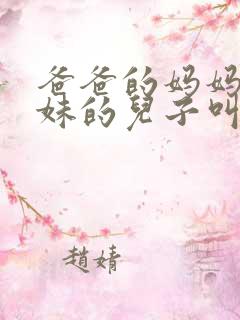 爸爸的妈妈
妹的兒子叫
趙婧